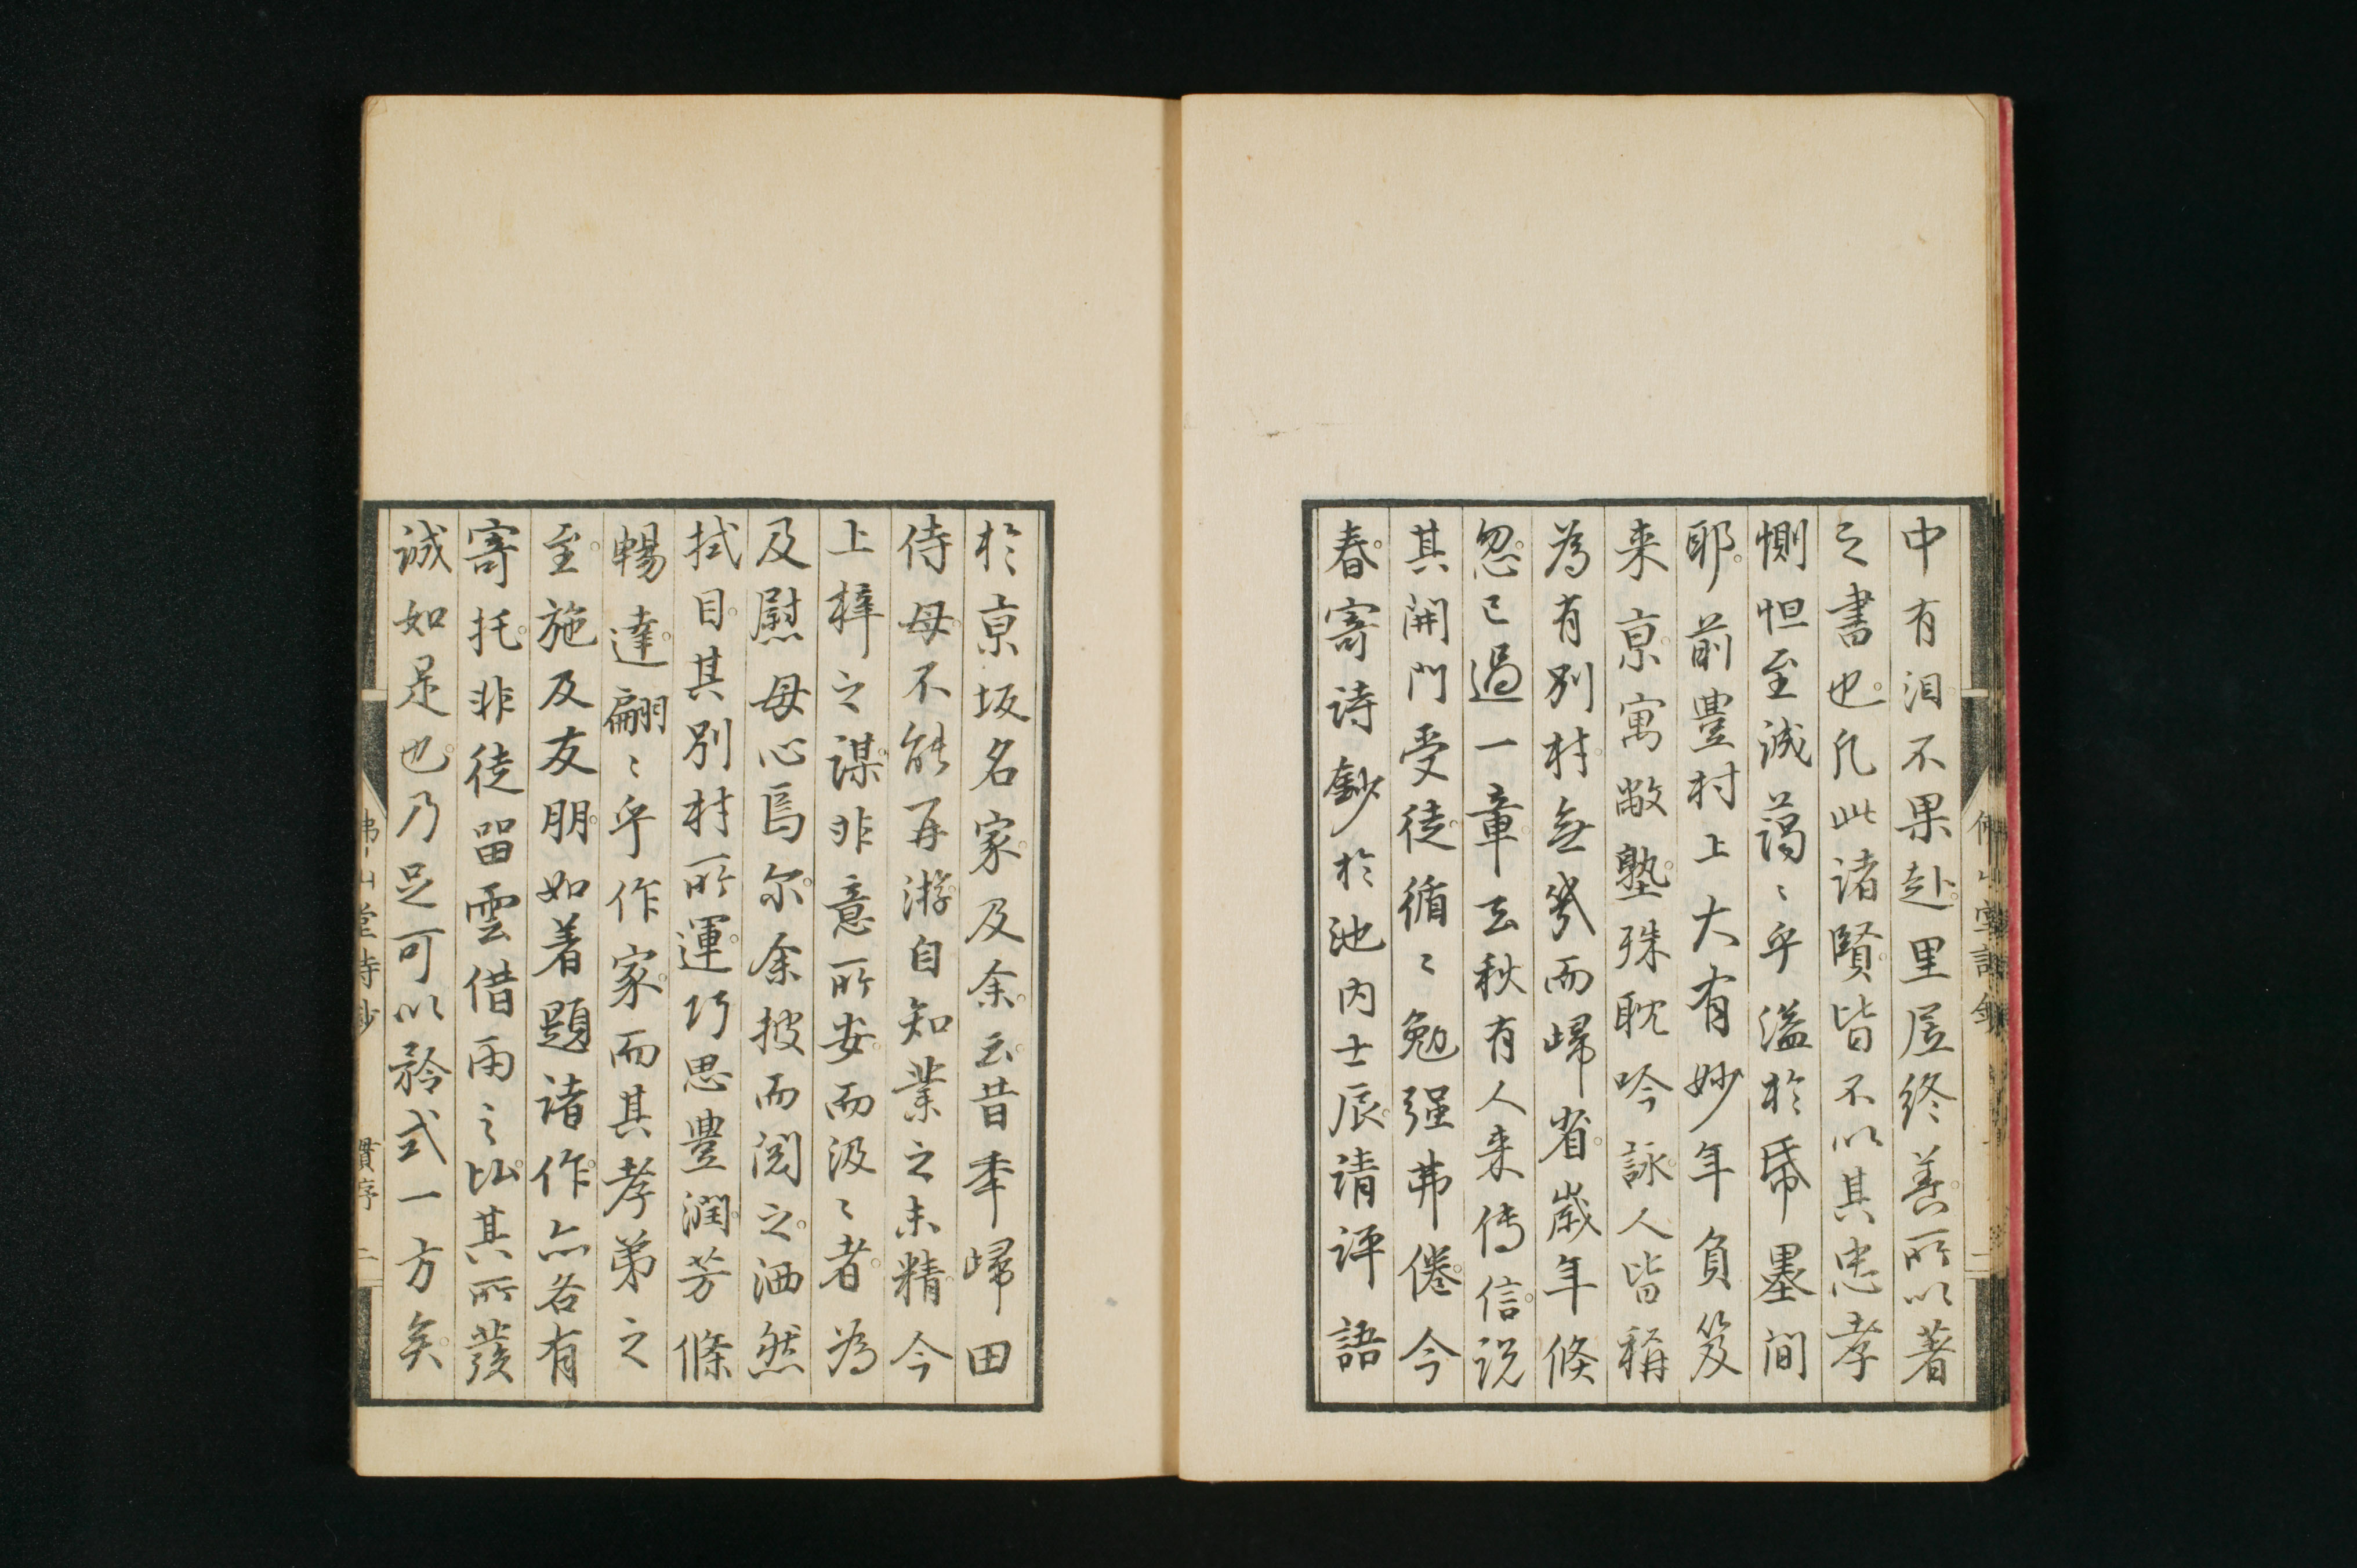 中有泪不果赴。里居終養。所以著
之書也。凡此諸賢。皆不以其忠孝
惻怛至誠藹〻乎溢於帋墨間
耶。前豊村上大有妙年負笈
来京。寓敝塾。殊耽吟詠。人皆稱
為有別材。無幾而歸省。歳年倏
忽。已過一章。去秋有人来傳信。説
其開門受徒。循〻勉强弗倦。今
春。寄詩鈔於池内士辰。請評語
於京坂名家。及余。云昔年歸田
侍母。不能再游。自知業之未精。今
上梓之謀。非意所安。而汲〻者。為
及慰母心焉尓。余披而閲之。洒然
拭目。其別材所運。巧思豊潤。芳條
暢達。翩〻乎作家。而其孝弟之
至。施及友朋。如著題諸作。亦各有
寄托。非徒留雲借雨之比。其所發
誠如是也。乃足可以矜式一方矣。
佛山堂詩鈔 貫序 二